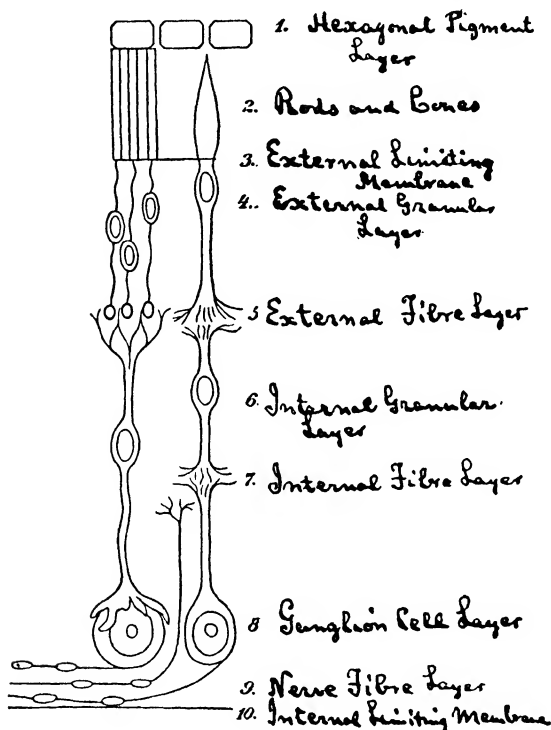 1. Hexagonal Pigment
Layer
2. Rods and Cones
3. External Limiting
Membrane
4. External Granular
Layer
5 External Fibre Layer
6. Internal Granular.
Layer
7. Internal Fibre Layer
8 Ganglion Cell Layer
9. Nerve Fibre Layer
10. Internal Limiting Membrane